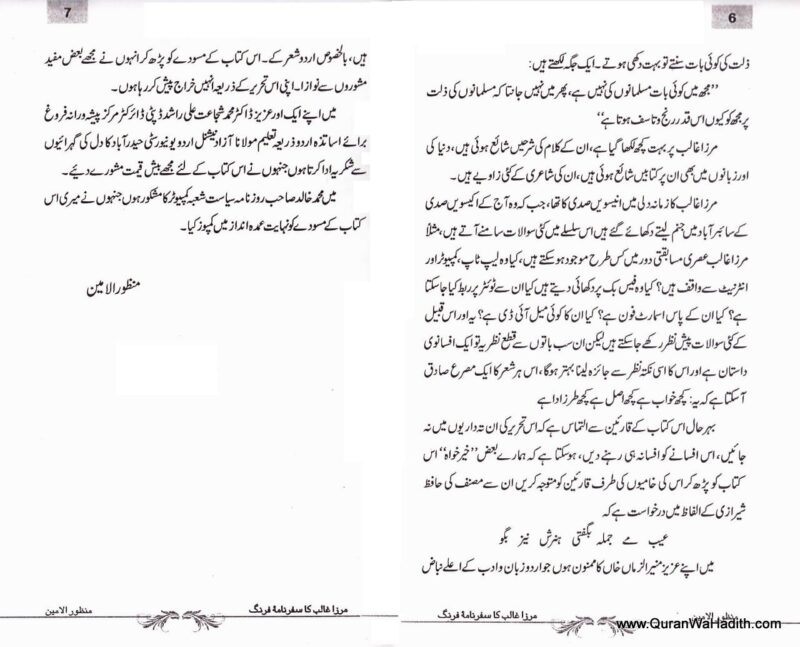 6
ذلت کی کوئی بات سنتے تو بہت دکھی ہوتے۔ ایک جگہ لکھتے ہیں:
”مجھ میں کوئی بات مسلمانوں کی نہیں ہے، پھر میں نہیں جانتا کہ مسلمانوں کی ذلت
پر مجھ کو کیوں اس قدر رنج و تاسف ہوتا ہے“
مرزا غالب پر بہت کچھ لکھا گیا ہے، ان کے کلام کی شرحیں شائع ہوئی ہیں، دنیا کی
اور زبانوں میں بھی ان پر کتابیں شائع ہوئی ہیں، ان کی شاعری کے کئی زاویے ہیں۔
مرزا غالب کا زمانہ دلی میں انیسویں صدی کا تھا، جب کہ وہ آج کے اکیسویں صدی
کے سائبر آباد میں جنم لیتے دکھائے گئے ہیں اس سلسلے میں کئی سوالات سامنے آتے ہیں، مثلاً
مرزا غالب عصری مسابقتی دور میں کس طرح موجود ہوسکتے ہیں، کیا وہ لیپ ٹاپ، کمپیوٹر اور
انٹرنیٹ سے واقف ہیں؟ کیا وہ فیس بک پر دکھائی دیتے ہیں کیا ان سے ٹوئٹر پر ربط کیا جاسکتا
ہے؟ کیا ان کے پاس اسمارٹ فون ہے؟ کیا ان کا کوئی میل آئی ڈی ہے؟ یہ اور اس قبیل
کے کئی سوالات پیش نظر رکھے جاسکتے ہیں لیکن ان سب باتوں سے قطع نظر یہ تو ایک افسانوی
داستان ہے اور اس کا اسی نکتہ نظر سے جائزہ لینا بہتر ہوگا، اس ہر شعر کا ایک مصرع صادق
آسکتا ہے کہ یہ: کچھ خواب ہے کچھ اصل ہے کچھ طرز ادا ہے
بہر حال اس کتاب کے قارئین سے التماس ہے کہ اس تحریر کی ان تہ داریوں میں نہ
جائیں، اس افسانے کو افسانہ ہی رہنے دیں، ہوسکتا ہے کہ ہمارے بعض ”خیر خواہ“ اس
کتاب کو پڑھ کر اس کی خامیوں کی طرف قارئین کو متوجہ کریں ان سے مصنف کی حافظ
شیرازی کے الفاظ میں درخواست ہے کہ
عیب مے جملہ بگفتی ہنرش نیز بگو
میں اپنے عزیز منیر الزماں خاں کا ممنون ہوں جو اردو زبان و ادب کے اعلے نباض
مرزا غالب کا سفرنامۂ فرنگ
منظور الامین
7
ہیں، بالخصوص اردو شعر کے۔ اس کتاب کے مسودے کو پڑھ کر انہوں نے مجھے بعض مفید
مشوروں سے نوازا۔ اپنی اس تحریر کے ذریعہ انہیں خراج پیش کر رہا ہوں۔
میں اپنے ایک اور عزیز ڈاکٹر محمد شجاعت علی راشد ڈپٹی ڈائرکٹر مرکز پیشہ ورانہ فروغ
برائے اساتذہ اردو ذریعہ تعلیم مولانا آزاد نیشنل اردو یونیورسٹی حیدرآباد کا دل کی گہرائیوں
سے شکریہ ادا کرتا ہوں جنہوں نے اس کتاب کے لئے مجھے بیش قیمت مشورے دیئے۔
میں محمد خالد صاحب روزنامہ سیاست شعبہ کمپیوٹر کا مشکور ہوں جنہوں نے میری اس
کتاب کے مسودے کو نہایت عمدہ انداز میں کمپوز کیا۔
منظور الامین
مرزا غالب کا سفرنامۂ فرنگ
منظور الامین
www.QuranWaHadith.com